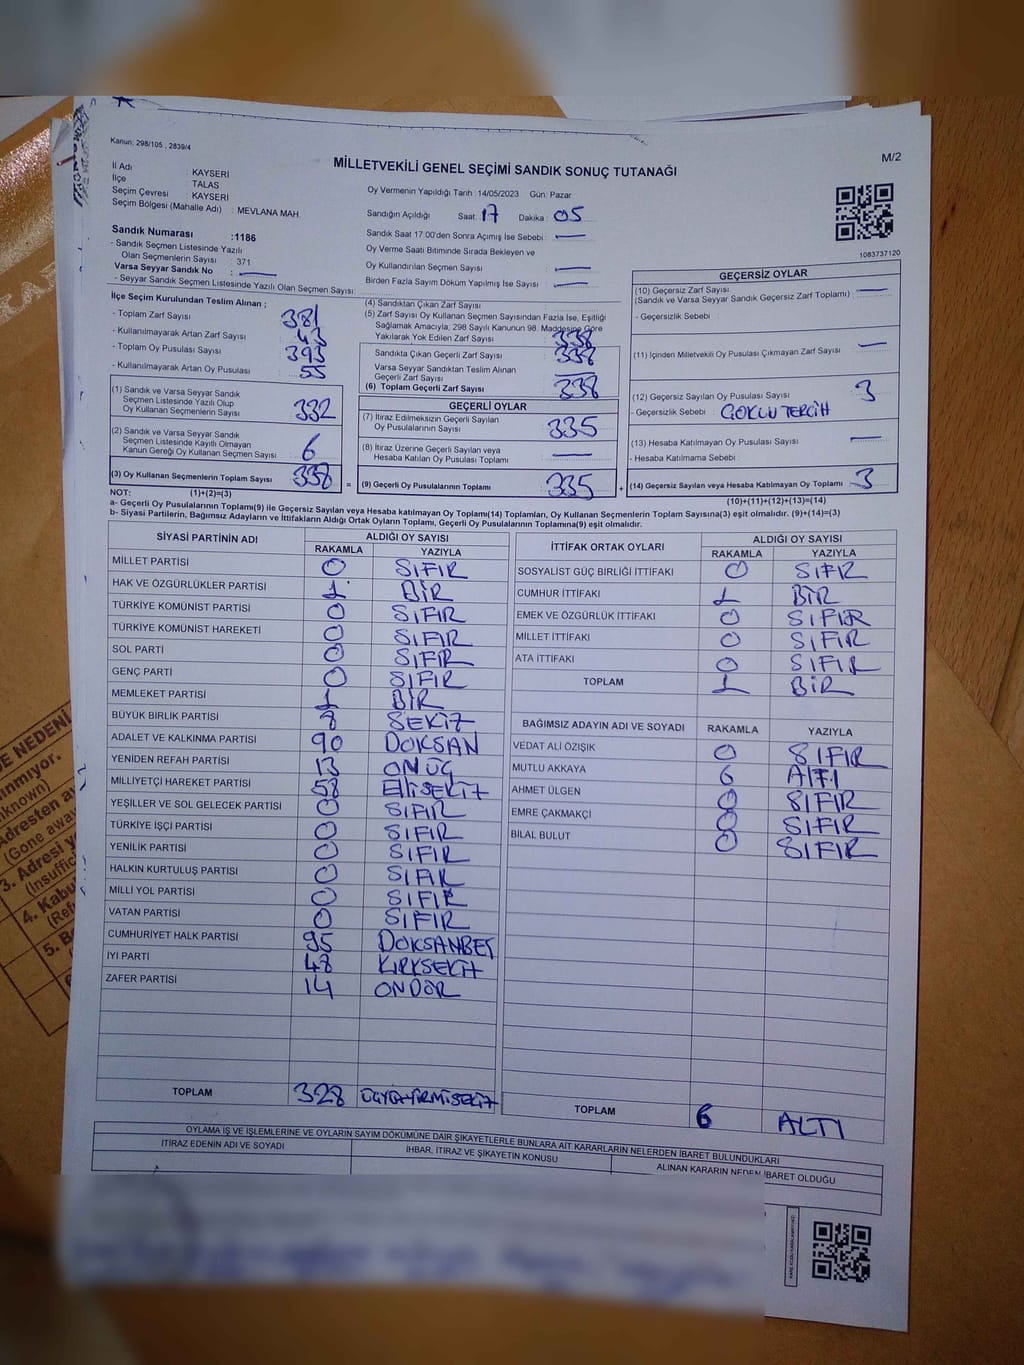 Kanun: 298/105 , 2839/4
M/2
MİLLETVEKİLİ GENEL SEÇİMİ SANDIK SONUÇ TUTANAĞI
İl Adı : KAYSERİ
İlçe : TALAS
Seçim Çevresi : KAYSERİ
Seçim Bölgesi (Mahalle Adı) : MEVLANA MAH.
Oy Vermenin Yapıldığı Tarih : 14/05/2023 Gün: Pazar
Sandığın Açıldığı Saat: 17 Dakika : 05
Sandık Saat 17:00'den Sonra Açımış İse Sebebi : —
Oy Verme Saati Bitiminde Sırada Bekleyen ve
Oy Kullandırılan Seçmen Sayısı : —
Birden Fazla Sayım Döküm Yapılmış İse Sayısı : —
1083737120
Sandık Numarası :1186
- Sandık Seçmen Listesinde Yazılı
Olan Seçmenlerin Sayısı : 371
Varsa Seyyar Sandık No : —
- Seyyar Sandık Seçmen Listesinde Yazılı Olan Seçmen Sayısı:
İlçe Seçim Kurulundan Teslim Alınan ;
- Toplam Zarf Sayısı : 381
- Kullanılmayarak Artan Zarf Sayısı : 43
- Toplam Oy Pusulası Sayısı : 393
- Kullanılmayarak Artan Oy Pusulası : 55
(1) Sandık ve Varsa Seyyar Sandık
Seçmen Listesinde Yazılı Olup
Oy Kullanan Seçmenlerin Sayısı : 332
(2) Sandık ve Varsa Seyyar Sandık
Seçmen Listesinde Kayıtlı Olmayan
Kanun Gereği Oy Kullanan Seçmen Sayısı : 6
(3) Oy Kullanan Seçmenlerin Toplam Sayısı : 338
(4) Sandıktan Çıkan Zarf Sayısı
(5) Zarf Sayısı Oy Kullanan Seçmen Sayısından Fazla İse, Eşitliği
Sağlamak Amacıyla; 298 Sayılı Kanunun 98. Maddesine Göre
Yakılarak Yok Edilen Zarf Sayısı : 338
Sandıkta Çıkan Geçerli Zarf Sayısı : 338
Varsa Seyyar Sandıktan Teslim Alınan
Geçerli Zarf Sayısı : —
(6) Toplam Geçerli Zarf Sayısı : 338
GEÇERLİ OYLAR
(7) İtiraz Edilmeksizin Geçerli Sayılan
Oy Pusulalarının Sayısı : 335
(8) İtiraz Üzerine Geçerli Sayılan veya
Hesaba Katılan Oy Pusulası Toplamı : —
= (9) Geçerli Oy Pusulalarının Toplamı : 335 +
GEÇERSİZ OYLAR
(10) Geçersiz Zarf Sayısı : —
(Sandık ve Varsa Seyyar Sandık Geçersiz Zarf Toplamı)
- Geçersizlik Sebebi :
(11) İçinden Milletvekili Oy Pusulası Çıkmayan Zarf Sayısı : —
(12) Geçersiz Sayılan Oy Pusulası Sayısı : 3
- Geçersizlik Sebebi : ÇOKLU TERCİH
(13) Hesaba Katılmayan Oy Pusulası Sayısı : —
- Hesaba Katılmama Sebebi :
(14) Geçersiz Sayılan veya Hesaba Katılmayan Oy Toplamı : 3
NOT: (1)+(2)=(3)
(10)+(11)+(12)+(13)=(14)
a- Geçerli Oy Pusulalarının Toplamı(9) ile Geçersiz Sayılan veya Hesaba Katılmayan Oy Toplamı(14) Toplamları, Oy Kullanan Seçmenlerin Toplam Sayısına(3) eşit olmalıdır. (9)+(14)=(3)
b- Siyasi Partilerin, Bağımsız Adayların ve İttifakların Aldığı Ortak Oyların Toplamı, Geçerli Oy Pusulalarının Toplamına(9) eşit olmalıdır.
SİYASİ PARTİNİN ADI ALDIĞI OY SAYISI
RAKAMLA YAZIYLA
MİLLET PARTİSİ 0 SIFIR
HAK VE ÖZGÜRLÜKLER PARTİSİ 1 BİR
TÜRKİYE KOMÜNİST PARTİSİ 0 SIFIR
TÜRKİYE KOMÜNİST HAREKETİ 0 SIFIR
SOL PARTİ 0 SIFIR
GENÇ PARTİ 0 SIFIR
MEMLEKET PARTİSİ 1 BİR
BÜYÜK BİRLİK PARTİSİ 8 SEKİZ
ADALET VE KALKINMA PARTİSİ 90 DOKSAN
YENİDEN REFAH PARTİSİ 13 ONÜÇ
MİLLİYETÇİ HAREKET PARTİSİ 58 ElliSEKİZ
YEŞİLLER VE SOL GELECEK PARTİSİ 0 SIFIR
TÜRKİYE İŞÇİ PARTİSİ 0 SIFIR
YENİLİK PARTİSİ 0 SIFIR
HALKIN KURTULUŞ PARTİSİ 0 SIFIR
MİLLİ YOL PARTİSİ 0 SIFIR
VATAN PARTİSİ 0 SIFIR
CUMHURİYET HALK PARTİSİ 95 DOKSANBEŞ
İYİ PARTİ 48 KIRKSEKİZ
ZAFER PARTİSİ 14 ONDÖR
TOPLAM 328
İTTİFAK ORTAK OYLARI ALDIĞI OY SAYISI
RAKAMLA YAZIYLA
SOSYALİST GÜÇ BİRLİĞİ İTTİFAKI 0 SIFIR
CUMHUR İTTİFAKI 1 BİR
EMEK VE ÖZGÜRLÜK İTTİFAKI 0 SIFIR
MİLLET İTTİFAKI 0 SIFIR
ATA İTTİFAKI 0 SIFIR
TOPLAM 1 BİR
BAĞIMSIZ ADAYIN ADI VE SOYADI RAKAMLA YAZIYLA
VEDAT ALİ ÖZIŞIK 0 SIFIR
MUTLU AKKAYA 6 AlTI
AHMET ÜLGEN 0 SIFIR
EMRE ÇAKMAKÇİ 0 SIFIR
BİLAL BULUT 0 SIFIR
TOPLAM 6 ALTI
OYLAMA İŞ VE İŞLEMLERİNE VE OYLARIN SAYIM DÖKÜMÜNE DAİR ŞİKAYETLERLE BUNLARA AİT KARARLARIN NELERDEN İBARET BULUNDUKLARI
İTİRAZ EDENİN ADI VE SOYADI İHBAR, İTİRAZ VE ŞİKAYETİN KONUSU ALINAN KARARIN NEDEN İBARET OLDUĞU